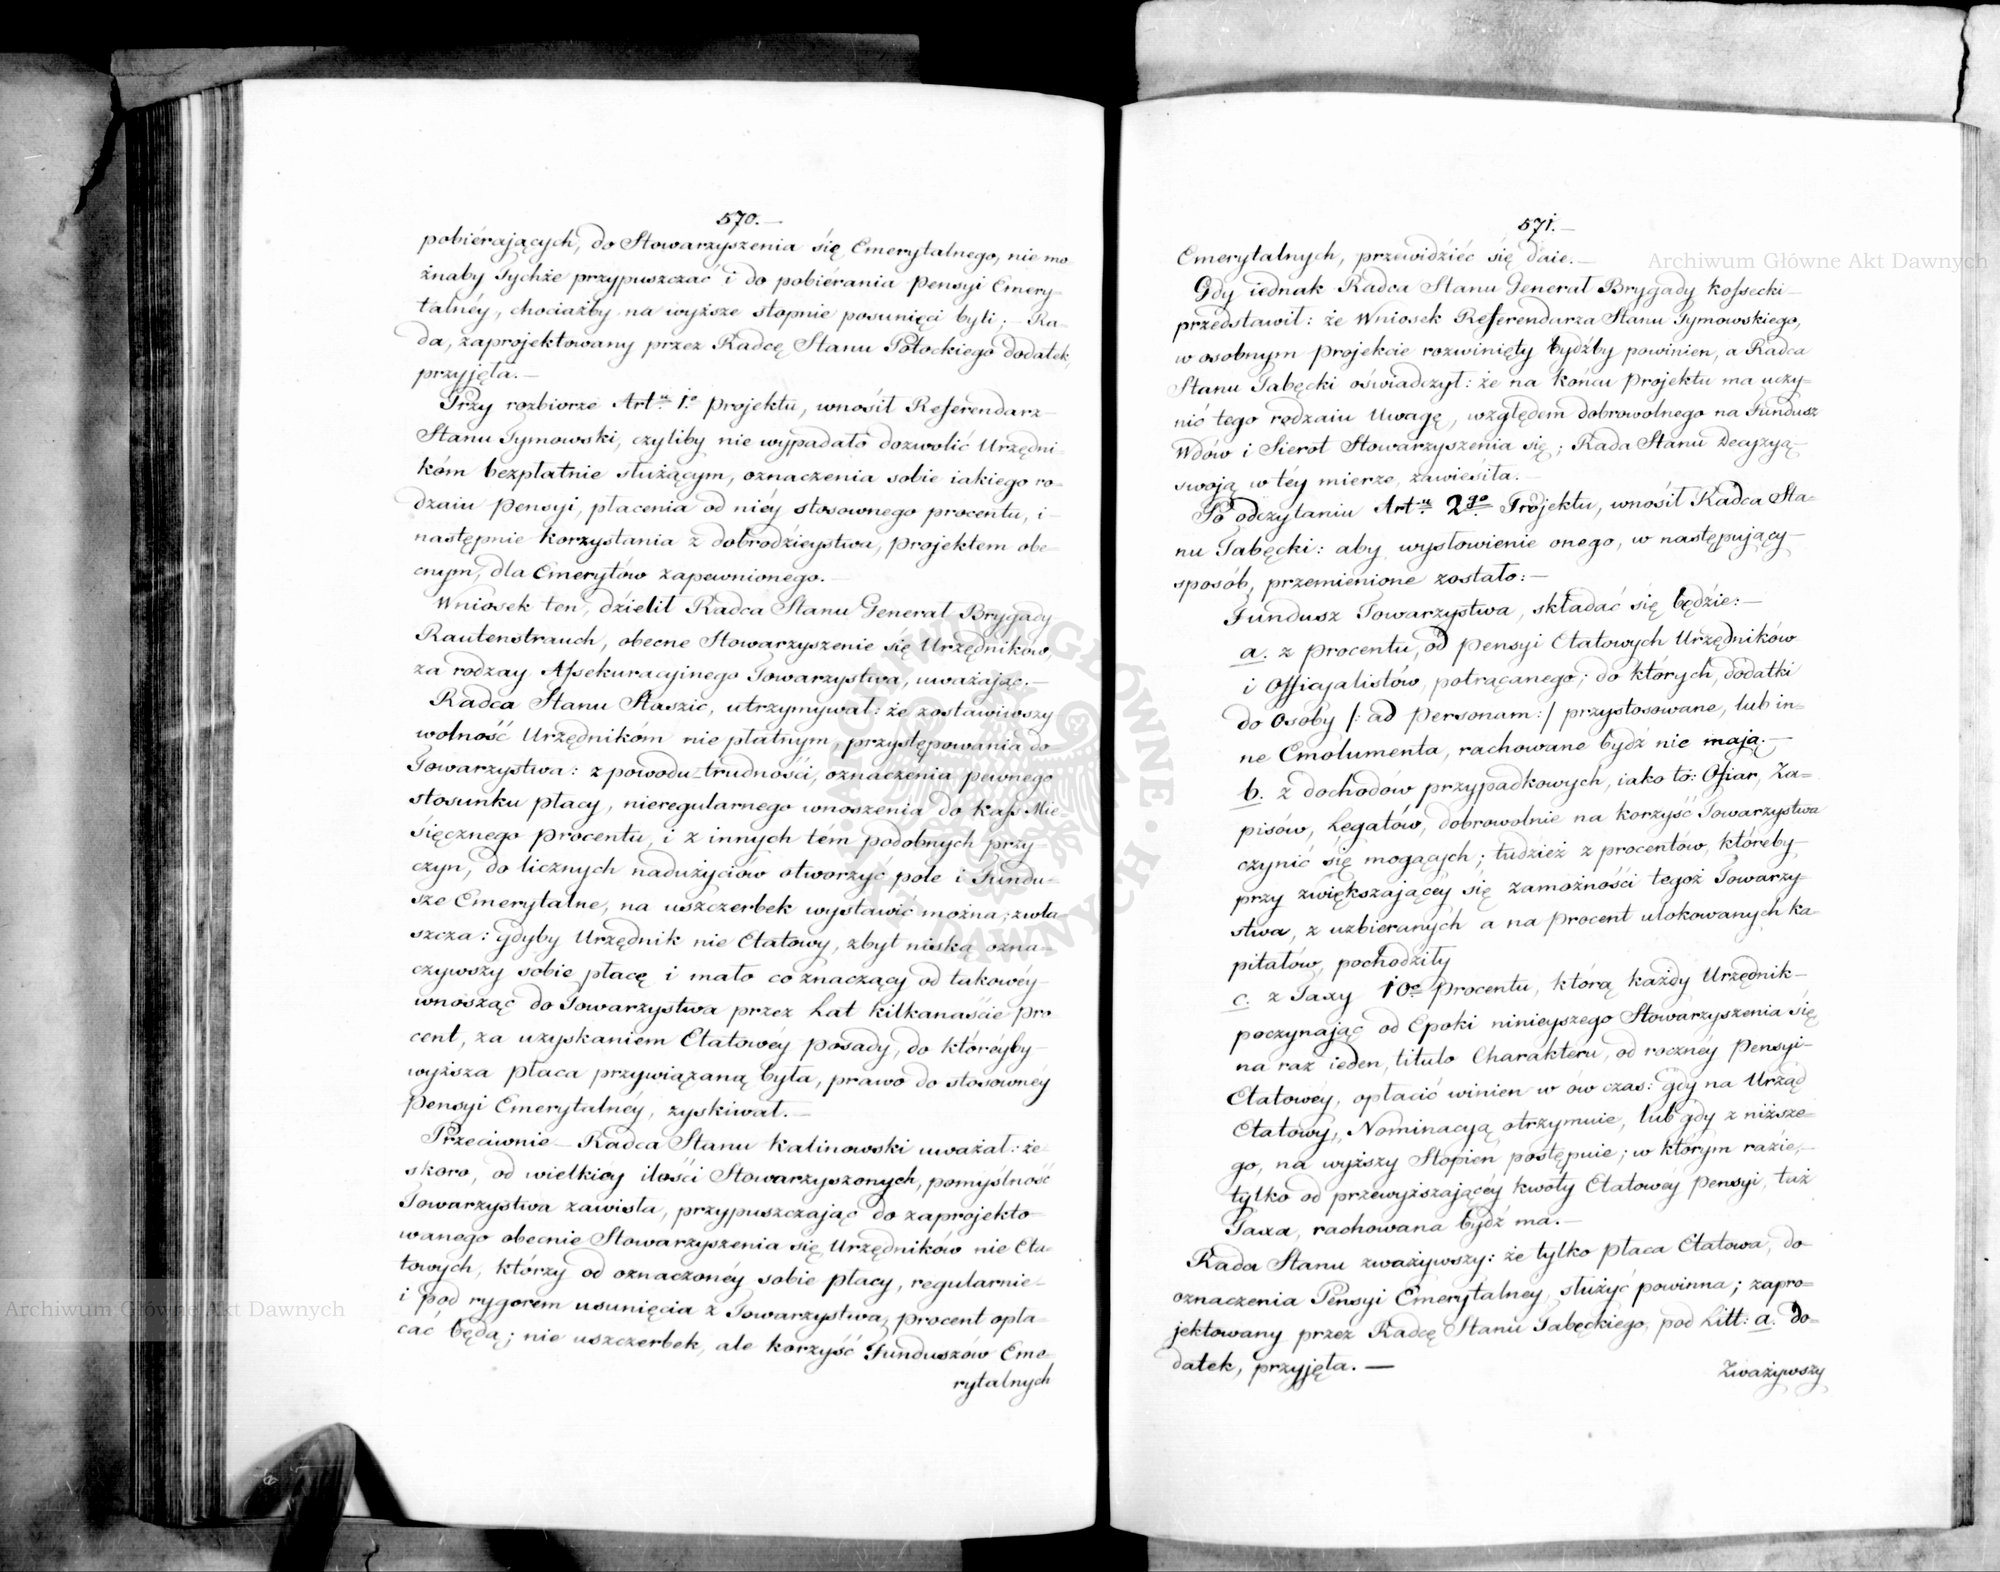 570.—
pobiérających, do Stowarzyszenia się Emerytalnego, nie mo
żnaby Tychże przypuszczać i do pobiérania Pensyi Emery-
talnéy, chociażby na wyższe stopnie posunięci byli; — Ra-
da, zaprojektowany przez Radcę Stanu Potockiego dodatek,
przyjęła.—
Przy rozbiorze Art.u 1.o Projektu, wnosił Referendarz
Stanu Tymowski, czyliby nie wypadało dozwolić Urzędni-
kóm bezpłatnie służącym, oznaczenia sobie iakiego ro-
dzaiu Pensyi, płacenia od niéy stosownego procentu, i-
następnie korzystania z dobrodzieystwa, Projektem obe-
cnym, dla Emerytów zapewnionego.—
Wniosek ten, dzielił Radca Stanu Generał Brygady
Rautenstrauch, obecne Stowarzyszenie się Urzędników,
za rodzay Assekuracyinego Towarzystwa, uważając.—
Radca Stanu Staszic, utrzymywał: że zostawiwszy
wolność Urzędnikóm nie płatnym, przystępowania do
Towarzystwa: z powodu trudności, oznaczenia pewnego
stosunku płacy, nieregularnego wnoszenia do Kass Mie-
sięcznego Procentu, i z innych tém podobnych przy-
czyn, do licznych nadużyciów otworzyć pole i Fundu-
sze Emerytalne, na uszczerbek wystawić można; zwła
szcza: gdyby Urzędnik nie Etatowy, zbyt niską ozna-
czywszy sobie płacę i mało co znaczący od takowéy-
wnosząc do Towarzystwa przez Lat kilkanaście Pro-
cent, za uzyskaniem Etatowéy posady, do któréyby-
wyższa płaca przywiązaną była, prawo do stosownéy
Pensyi Emerytalnéy, zyskiwał.—
Przeciwnie— Radca Stanu Kalinowski uważał: że-
skoro, od wielkiey ilości Stowarzyszonych, pomyślność
Towarzystwa zawisła, przypuszczając do zaprojekto-
wanego obecnie Stowarzyszenia się Urzędników nie Eta-
towych, którzy od oznaczonéy sobie płacy, regularnie-
i pod rygorem usunięcia z Towarzystwa, procent opła-
cać będą; nie uszczerbek, ale korzyść Funduszów Eme-
rytalnych
571.—
Emerytalnych, przewidzieć się daie.—
Gdy iednak Radca Stanu Generał Brygady Kossecki—
przedstawił: że Wniosek Referendarza Stanu Tymowskiego,
w osobnym Projekcie rozwinięty bydźby powinien, a Radca
Stanu Tabęcki oświadczył: że na końcu Projektu ma uczy-
nić tego rodzaiu Uwagę, względem dobrowolnego na Fundusz
Wdów i Sierot Stowarzyszenia się; Rada Stanu Decyzyą-
swoją w téy mierze, zawiesiła.—
Po odczytaniu Art.u 2go Projektu, wnosił Radca Sta-
nu Tabęcki: aby wysłowienie onego, w następujący-
sposób, przemienione zostało:—
Fundusz Towarzystwa, składać się będzie:—
a. z procentu, od Pensyi Etatowych Urzędników
i Officyalistów, potrącanego; do których, dodatki
do Osoby /: ad Personam:/ przystosowane, lub in-
ne Emolumenta, rachowane bydź nie mają.—
b. z dochodów przypadkowych, iako to: Ofiar, Za-
pisów, Legatów, dobrowolnie na korzyść Towarzystwa
czynić się mogących; tudzież z procentów, któreby-
przy zwiększającéy się zamożności tegoż Towarzy
stwa, z uzbieranych a na procent ulokowanych ka-
pitałów, pochodziły
c. z Taxy 10o Procentu, którą każdy Urzędnik—
poczynając od Epoki ninieyszego Stowarzyszenia się
na raz ieden, titulo Charakteru, od rocznéy Pensyi-
Etatowéy, opłacić winien w ów czas: gdy na Urząd
Etatowy, Nominacyą otrzymuie, lub gdy z niższe-
go, na wyższy Stopień postępuie; w którym razie,—
tylko od przewyższającéy kwoty Etatowéy Pensyi, taż
Taxa, rachowana bydź ma.—
Rada Stanu zważywszy: że tylko płaca Etatowa, do
oznaczenia Pensyi Emerytalney, służyć powinna; zapro-
jektowany przez Radcę Stanu Tabęckiego, pod Litt: a. do-
datek, przyjęła. —
Zważywszy
Archiwum Główne Akt Dawnych
Archiwum Główne Akt Dawnych
ARCHIWUM GŁÓWNE AKT DAWNYCH